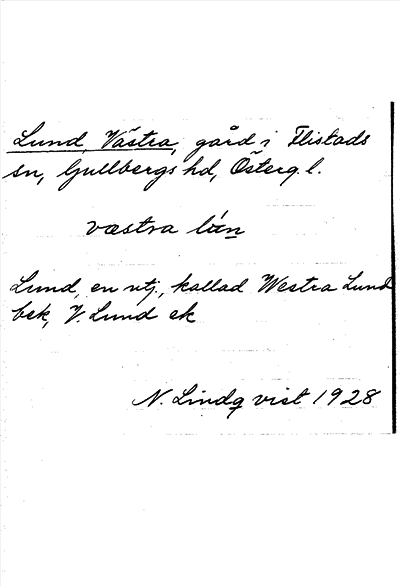 Lund, Västra, gård i Flistads
sn, Gullbergs hd, Österg.l.
væstra lún
Lund, en utj., kallad Westra Lund
bek, V. Lund ek
N. Lindqvist 1928